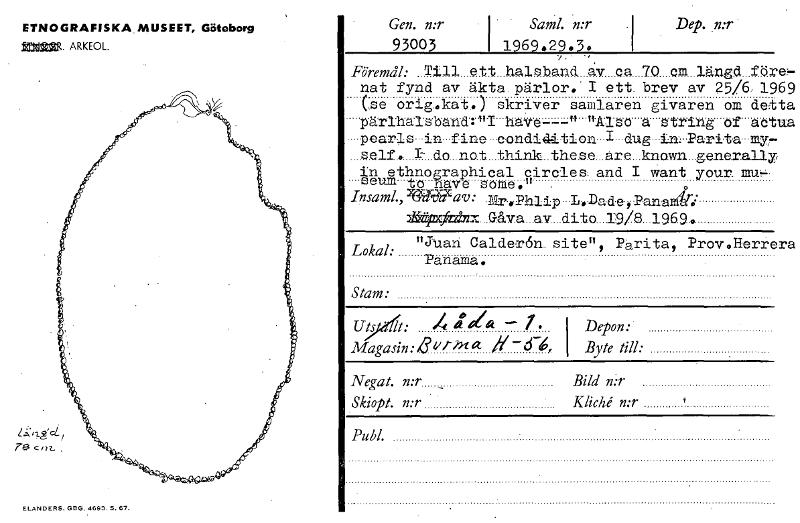 ETNOGRAFISKA MUSEET, Göteborg
R. ARKEOL.
Längd,
70 cm.
ELANDERS. GBG. 4693. S. 67.
Gen. n:r Saml. n:r Dep. n:r
93003 1969.29.3.
Föremål: Till ett halsband av ca 70 cm längd före-
nat fynd av äkta pärlor. I ett brev av 25/6 1969
(se orig.kat.) skriver samlaren givaren om detta
pärlhalsband:"I have---" "Also a string of actua
pearls in fine condidition I dug in Parita my-
self. I do not think these are known generally
in ethnographical circles and I want your mu-
seum to have some."
Insaml., Gåva av: Mr.Phlip L.Dade,Panama. År:
Köpt från: Gåva av dito 19/8 1969.
Lokal: "Juan Calderón site", Parita, Prov.Herrera
Panama.
Stam:
Utställt: Låda - 1. Depon:
Magasin: Burma H-56. Byte till:
Negat. n:r Bild n:r
Skiopt. n:r Kliché n:r
Publ.